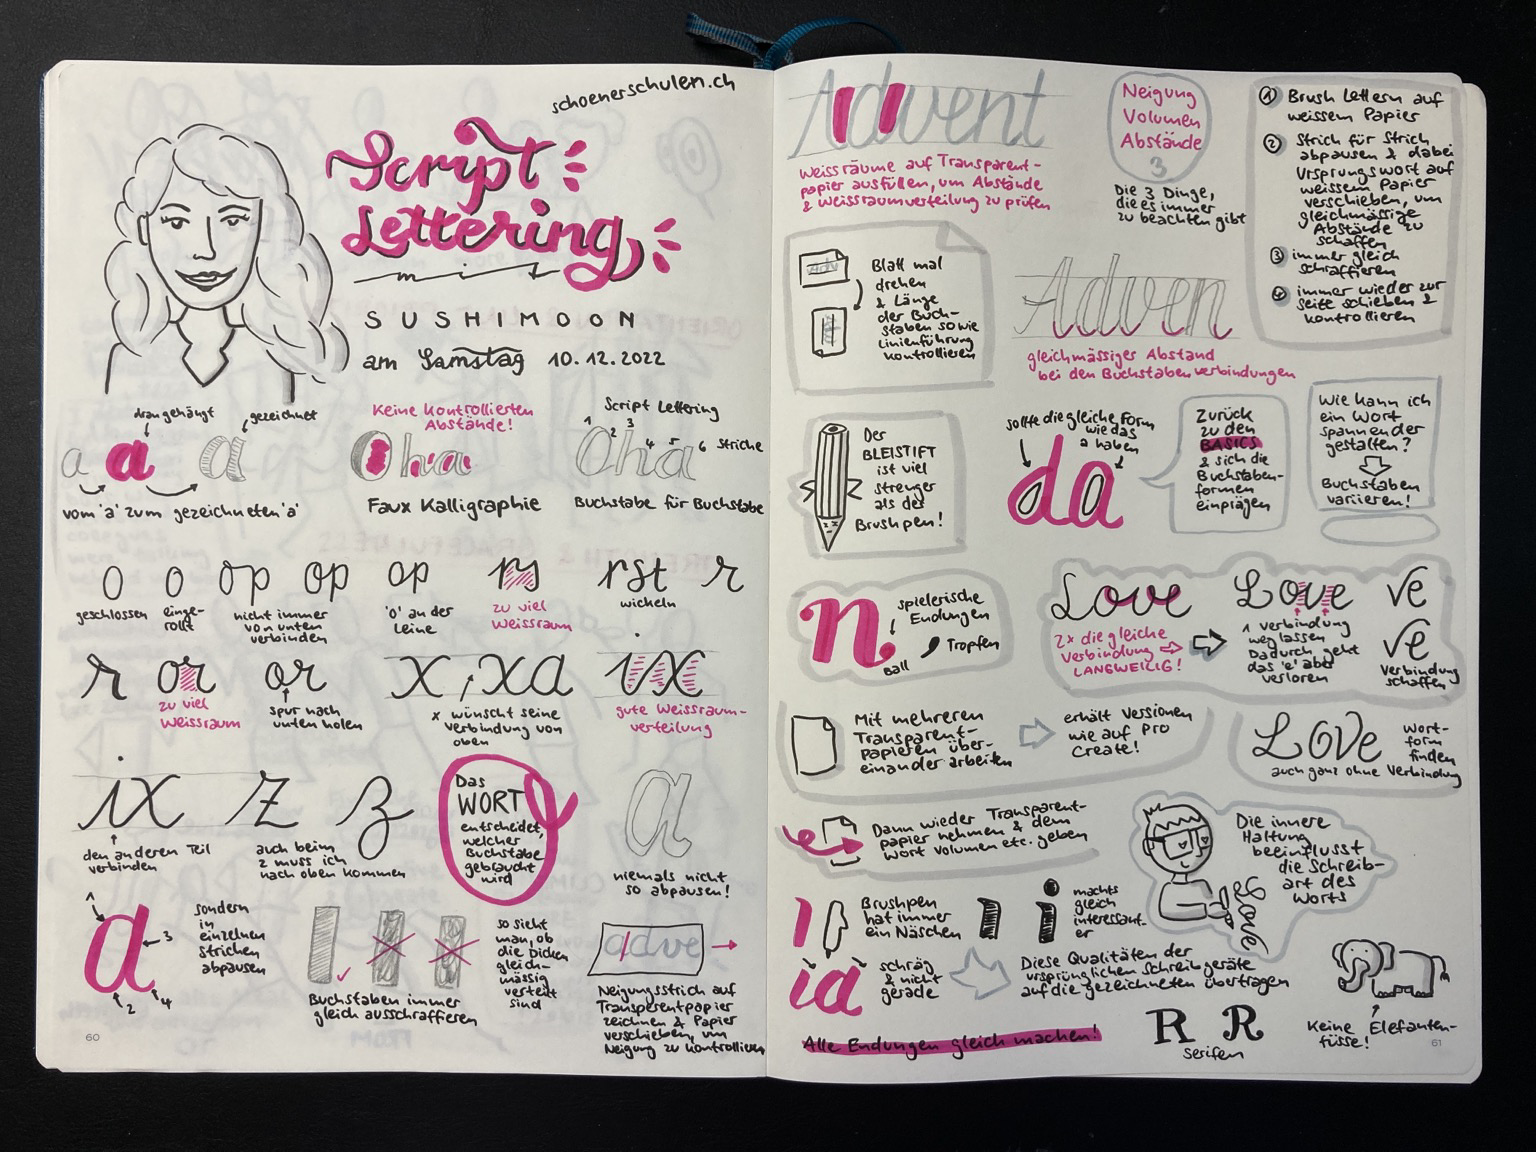 schoenerschulen.ch
Script
Lettering
mit
SUSHIMOON
am Samstag 10.12.2022
drangehängt
gezeichnet
a a a
vom 'a' zum gezeichneten 'a'
Keine kontrollierten
Abstände!
Oha
Faux Kalligraphie
Script Lettering
1 2 3 4 5 6 Striche
Oha
Buchstabe für Buchstabe
o o op op op rs rst r
geschlossen
einge-
rollt
nicht immer
von unten
verbinden
'o' an der
Leine
zu viel
Weissraum
wickeln
r or or x, xa ix
zu viel
Weissraum
spur nach
unten holen
x wünscht seine
verbindung von
oben
gute Weissraum-
verteilung
ix z z
den anderen Teil
verbinden
auch beim
z muss ich
nach oben kommen
Das
WORT
entscheidet,
welcher
Buchstabe
gebraucht
wird
a
niemals nicht
so abpausen!
d
1
3
2
4
sondern
in
einzelnen
strichen
abpausen
Buchstaben immer
gleich ausschraffieren
so sieht
man, ob
die Dicken
gleich-
mässig
verteilt
sind
adve
Neigungsstrich auf
Transparentpapier
zeichnen & Papier
verschieben, um
Neigung zu kontrollieren
60
Advent
Weissräume auf Transparent-
papier ausfüllen, um Abstände
& Weissraumverteilung zu prüfen
Neigung
Volumen
Abstände
3
Die 3 Dinge,
die es immer
zu beachten gibt
1 Brush Lettern auf
weissem Papier
2 Strich für Strich
abpausen & dabei
Ursprungswort auf
weissem Papier
verschieben, um
gleichmässige
Abstände zu
schaffen
3 immer gleich
schraffieren
4 immer wieder zur
Seite schieben &
kontrollieren
Adv
Blatt mal
drehen
& Länge
der Buch-
staben sowie
Linienführung
kontrollieren
Adven
gleichmässiger Abstand
bei den Buchstabenverbindungen
Der
BLEISTIFT
ist viel
strenger
als der
Brushpen!
sollte die gleiche Form
wie das
a haben
da
Zurück
zu den
BASICS
& sich die
Buchstaben-
formen
einprägen
Wie kann ich
ein Wort
spannender
gestalten?
Buchstaben
variieren!
n
spielerische
Endungen
Tropfen
Ball
Love
2x die gleiche
Verbindung
LANGWEILIG!
Love
1 verbindung
weglassen
Dadurch geht
das 'e' aber
verloren
ve
ve
Verbindung
schaffen
Mit mehreren
Transparent-
papieren über-
einander arbeiten
erhält Versionen
wie auf Pro
Create!
LOVe
Wort-
form
finden
auch ganz ohne Verbindung
Dann wieder Transparent-
papier nehmen & dem
Wort Volumen etc. geben
Love
Die innere
Haltung
beeinflusst
die Schreib-
art des
Worts
Brushpen
hat immer
ein Näschen
i
machts
gleich
interessant-
er
ia
schräg
& nicht
gerade
Diese Qualitäten der
ursprünglichen Schreibgeräte
auf die gezeichneten übertragen
Alle Endungen gleich machen!
R R
Serifen
Keine Elefanten-
füsse!
61